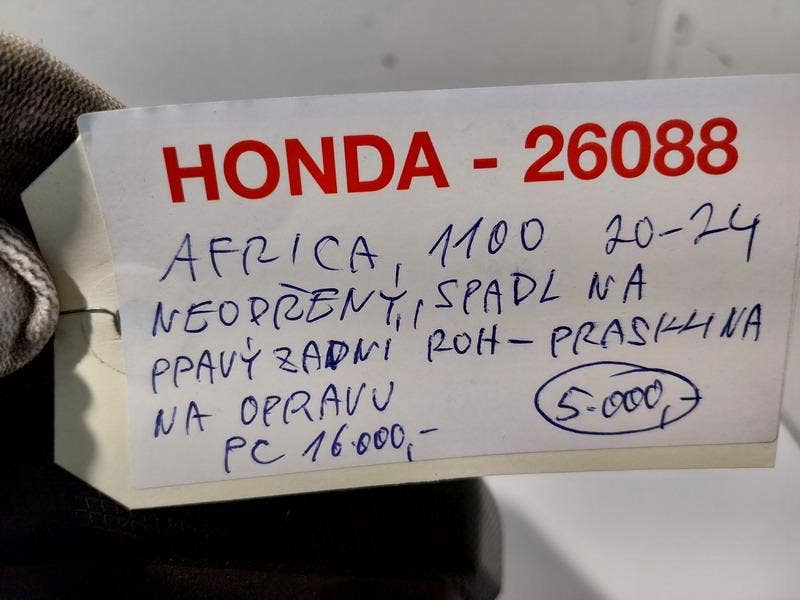 HONDA - 26088
AFRICA, 1100 20-24
NEODŘENÝ, SPADL NA
PPAVÝ ZADNÍ ROH - PRASKLINA
NA OPRAVU
5.000,-
PC 16.000,-